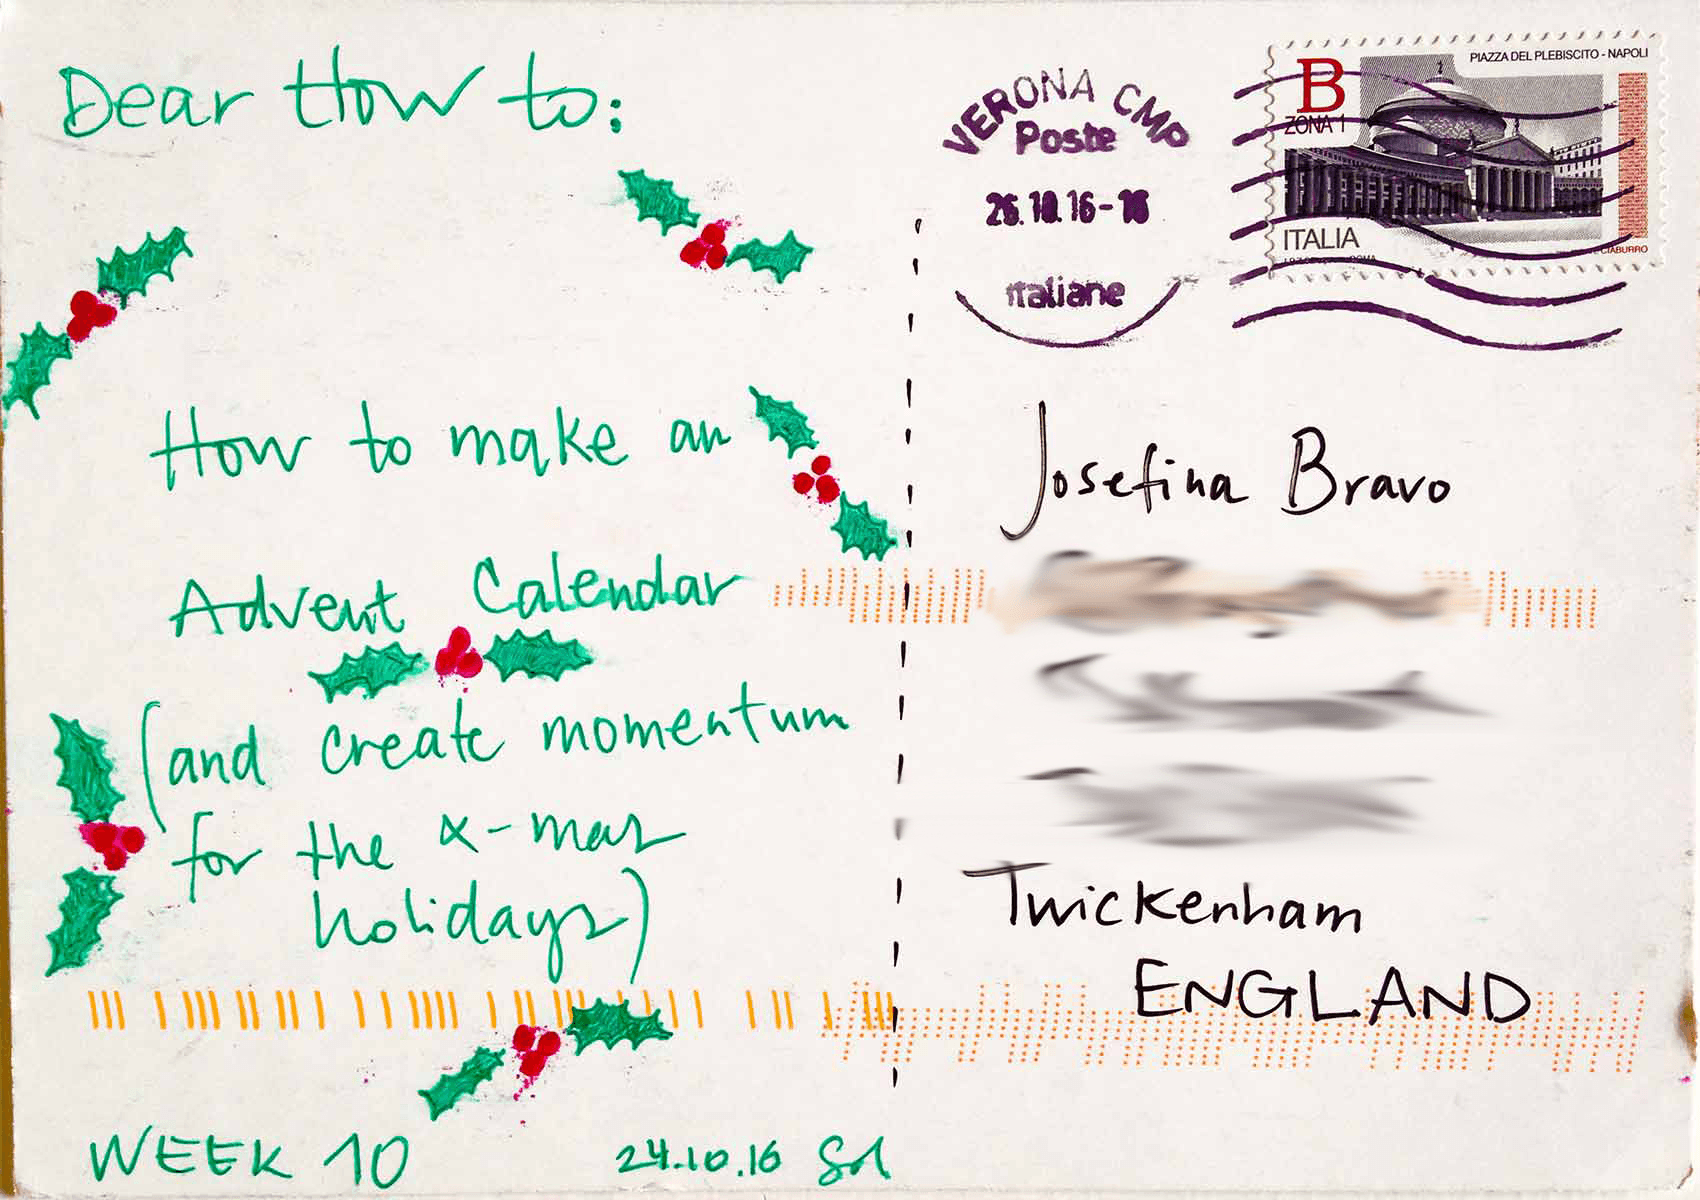 Dear How to:
How to make an
Advent Calendar
(and create momentum
for the x-mas
holidays)
WEEK 10
24.10.16 Sol
VERONA CMP
Poste
26.10.16-16
italiane
PIAZZA DEL PLEBISCITO - NAPOLI
B
ZONA 1
ITALIA
CIABURRO
Josefina Bravo
Twickenham
ENGLAND